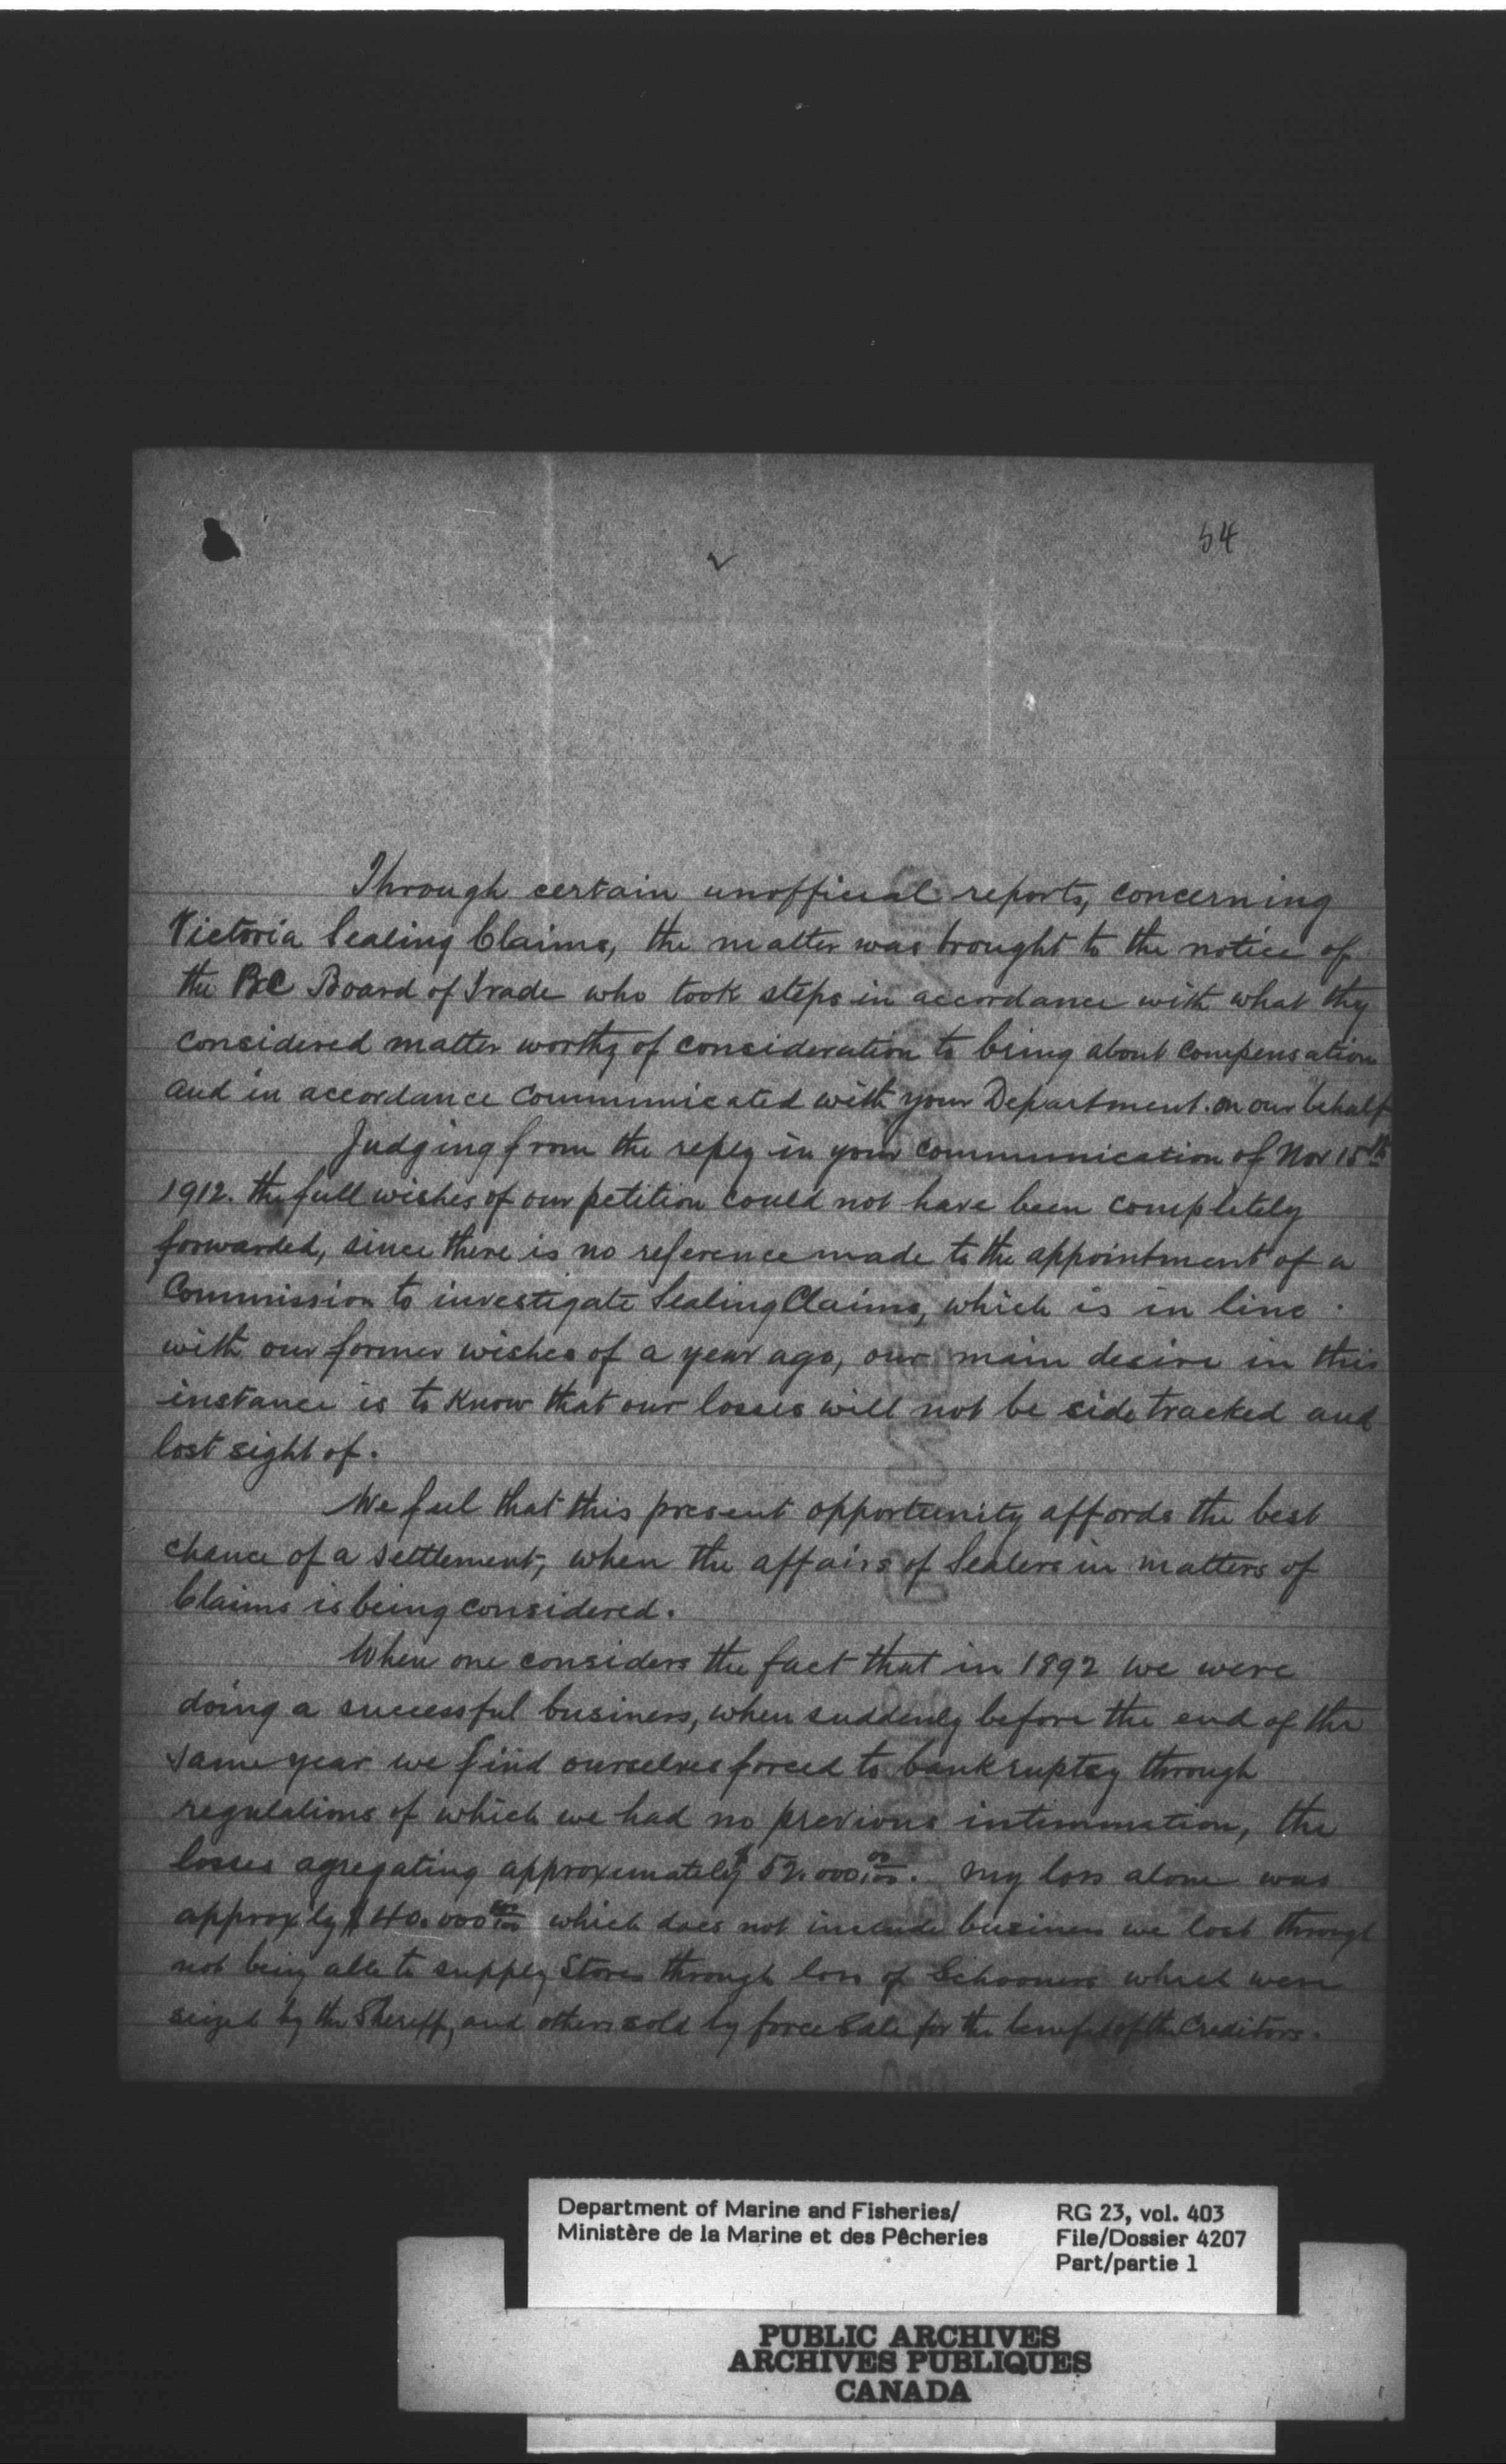 54
2
Through certain unofficial reports, concerning
Victoria Sealing Claims, the matter was brought to the notice of
the BC Board of Trade who took steps in accordance with what they
considered matter worthy of consideration to bring about compensation
and in accordance communicated with your Department. on our behalf
Judging from the reply in your communication of Nov 15th
1912. the full wishes of our petition could not have been completely
forwarded, since there is no reference made to the appointment of a
Commission to investigate Sealing Claims, which is in line
with our former wishes of a year ago, our main desire in this
instance is to know that our losses will not be side tracked and
lost sight of.
We feel that this present opportunity affords the best
chance of a settlement, when the affairs of Sealers in matters of
Claims is being considered.
When one considers the fact that in 1892 we were
doing a successful business, when suddenly before the end of the
same year we find ourselves forced to bankruptcy through
regulations of which we had no previous intimmation, the
losses agregating approximately $52.000.00/100. My loss alone was
approx'ly $40.000 00/100 which does not include business we lost through
not being able to supply Stores through loss of Schooners which were
seized by the Sheriff, and others sold by force Sale for the benefit of the Creditors.
Department of Marine and Fisheries/
Ministère de la Marine et des Pêcheries
RG 23, vol. 403
File/Dossier 4207
Part/partie 1
PUBLIC ARCHIVES
ARCHIVES PUBLIQUES
CANADA